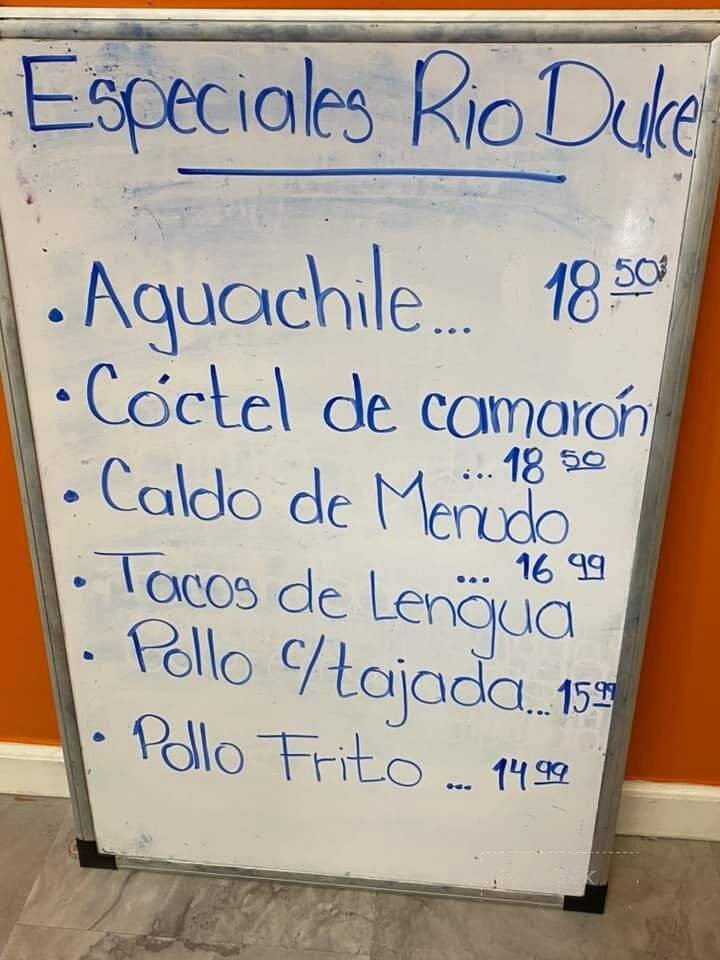 Especiales Rio Dulce
• Aguachile... 18 50
• Cóctel de camarón
... 18 50
• Caldo de Menudo
... 16 99
• Tacos de Lengua
• Pollo c/tajada... 15 99
• Pollo Frito ... 14 99